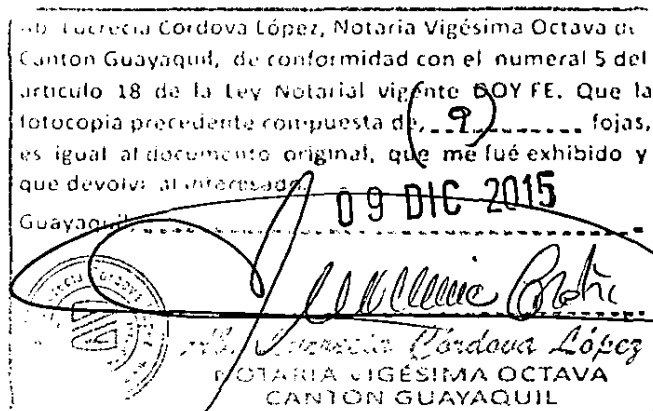 Ab. Lucrecia Córdova López, Notaria Vigésima Octava del
Canton Guayaquil, de conformidad con el numeral 5 del
articulo 18 de la Ley Notarial vigente DOY FE. Que la
fotocopia precedente compuesta de, (9) fojas,
es igual al documento original, que me fué exhibido y
que devolví al interesado.
Guayaquil, 09 DIC 2015
Ab. Lucrecia Córdova López
NOTARIA VIGÉSIMA OCTAVA
CANTON GUAYAQUIL